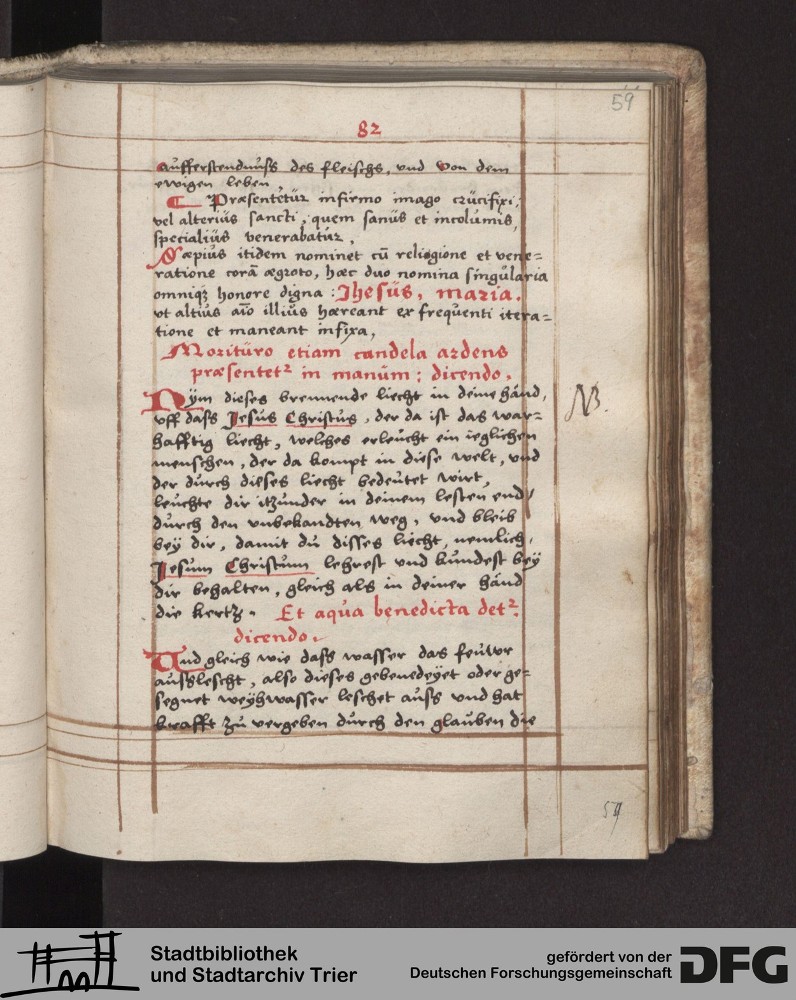 59
82
aufferstendnuſs des fleischs, und von dem
ewigen leben,
Præsentetur infirmo imago crucifixi,
vel alterius sancti, quem sanus et incolumis,
specialius venerabatur,
Sæpius itidem nominet cū religione et vene=
ratione corā ægroto, hæc duo nomina singularia
omniqz honore digna: Jhesus, maria.
ut altius aīo illius hæreant ex frequenti itera=
tione et maneant infixa,
Morituro etiam candela ardens
præsentetr in manum: dicendo.
Nym dieses brennende liecht in deine hånd,
uff daſs Jesus Christus, der da ist das war=
hafftig liecht, welches erleucht ein ieglichen
menschen, der da kompt in diese welt, und
der durch dieses liecht bedeutet wirt,
leuchte dir itzunder in deinem lesten end,
durch den unbekandten weg, und bleib
bey dir, damit du disses liecht, nemlich,
Jesum Christum lehrest und kundest bey
dir behalten, gleich als in deiner hånd
die kertz. Et aqua benedicta detr.
dicendo.
Und gleich wie daſs wasser das feuwr
auſslescht, also dieses gebenedeyet oder ge=
segnet weyhwasser leschet auſs und hat
krafft zu vergeben durch den glauben die
NB.
59
Stadtbibliothek
und Stadtarchiv Trier
gefördert von der
Deutschen Forschungsgemeinschaft
DFG